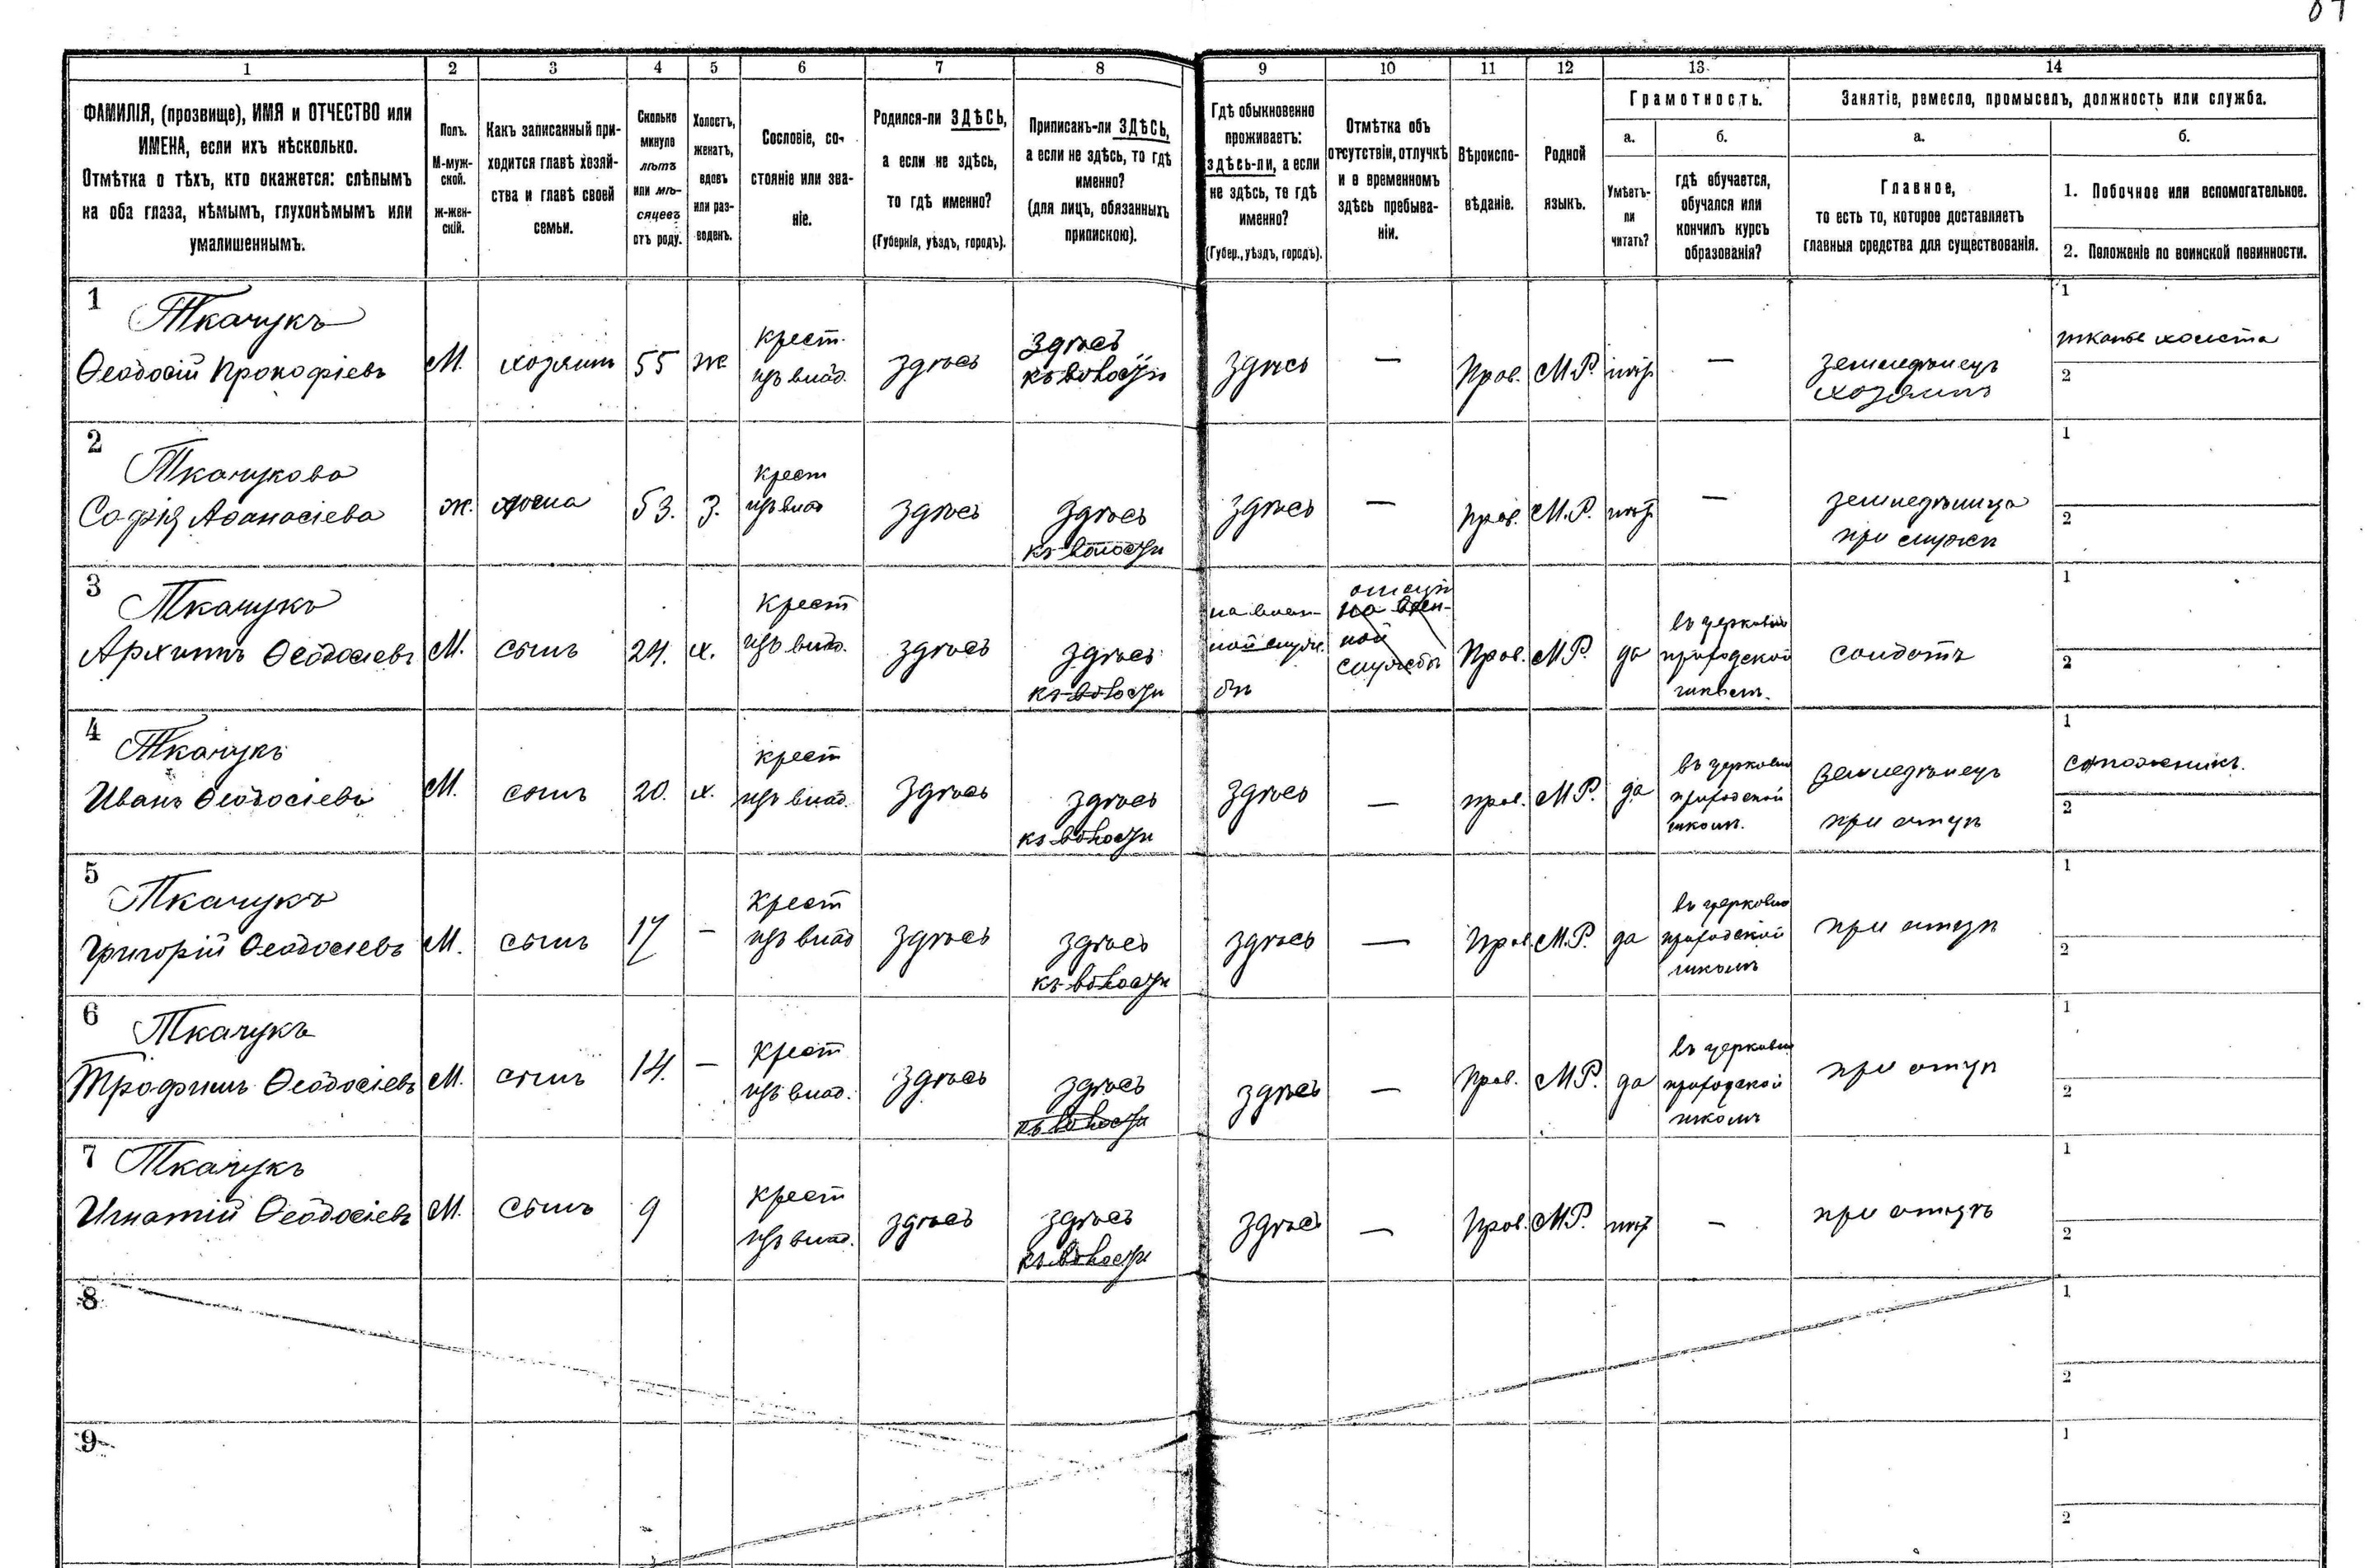 1 2 3 4 5 6 7 8 9 10 11 12 13 14
ФАМИЛІЯ, (прозвище), ИМЯ и ОТЧЕСТВО или
ИМЕНА, если ихъ нѣсколько.
Отмѣтка о тѣхъ, кто окажется: слѣпымъ
на оба глаза, нѣмымъ, глухонѣмымъ или
умалишеннымъ.
Полъ.
М-муж-
ской.
ж-жен-
скій.
Какъ записанный при-
ходится главѣ хозяй-
ства и главѣ своей
семьи.
Сколько
минуло
лѣтъ
или мѣ-
сяцевъ
отъ роду.
Холостъ,
женатъ,
вдовъ
или раз-
веденъ.
Сословіе, со-
стояніе или зва-
ніе.
Родился-ли ЗДѢСЬ,
а если не здѣсь,
то гдѣ именно?
(Губернія, уѣздъ, городъ).
Приписанъ-ли ЗДѢСЬ,
а если не здѣсь, то гдѣ
именно?
(для лицъ, обязанныхъ
припискою).
Гдѣ обыкновенно
проживаетъ:
здѣсь-ли, а если
не здѣсь, то гдѣ
именно?
(Губер., уѣздъ, городъ).
Отмѣтка объ
отсутствіи, отлучкѣ
и о временномъ
здѣсь пребыва-
ніи.
Вѣроиспо-
вѣданіе.
Родной
языкъ.
Грамотность.
а.
Умѣетъ-
ли
читать?
б.
гдѣ обучается,
обучался или
кончилъ курсъ
образованія?
Занятіе, ремесло, промыселъ, должность или служба.
а.
Главное,
то есть то, которое доставляетъ
главныя средства для существованія.
б.
1. Побочное или вспомогательное.
2. Положеніе по воинской повинности.
1
Ткачукъ
Ѳеодосій Прокофіевъ
М.
хозяинъ
55
ж
крест.
изъ влад.
здѣсь
здѣсь
къ волости
здѣсь
—
Прав.
М.Р.
нѣтъ
—
земледѣлецъ
хозяинъ
1
тканье холста
2
2
Ткачукова
Софія Аѳанасіева
ж.
жена
53.
З.
крест
изъ влад
здѣсь
здѣсь
къ волости
здѣсь
—
прав.
М.Р.
нѣтъ
—
земледѣлица
при мужѣ
1
2
3
Ткачукъ
Архипъ Ѳеодосіевъ
М.
сынъ
24.
х.
крест
изъ влад.
здѣсь
здѣсь
къ волости
на воен-
ной служ.
бѣ
на воен-
ной
службѣ
Прав.
М.Р.
да
въ церковно
приходской
школѣ.
солдатъ
1
2
4
Ткачукъ
Иванъ Ѳеодосіевъ
М.
сынъ
20.
х.
крест
изъ влад.
здѣсь
здѣсь
къ волости
здѣсь
—
прав.
М.Р.
да
въ церковно
приходской
школѣ.
земледѣлецъ
при отцѣ
1
сапожникъ.
2
5
Ткачукъ
Григорій Ѳеодосіевъ
М.
сынъ
17
-
Крест
изъ влад
здѣсь
здѣсь
къ волости
здѣсь
—
Прав.
М.Р.
да
въ церковно
приходской
школѣ
при отцѣ
1
2
6
Ткачукъ
Трофимъ Ѳеодосіевъ
М.
сынъ
14.
-
Крест
изъ влад.
здѣсь
здѣсь
къ волости
здѣсь
—
Прав.
М.Р.
да
въ церковно
приходской
школѣ
при отцѣ
1
2
7
Ткачукъ
Игнатій Ѳеодосіевъ
М.
сынъ
9
крест
изъ влад.
здѣсь
здѣсь
къ волости
здѣсь
—
Прав.
М.Р.
нѣт
—
при отцѣ
1
2
8
1
2
9
1
2